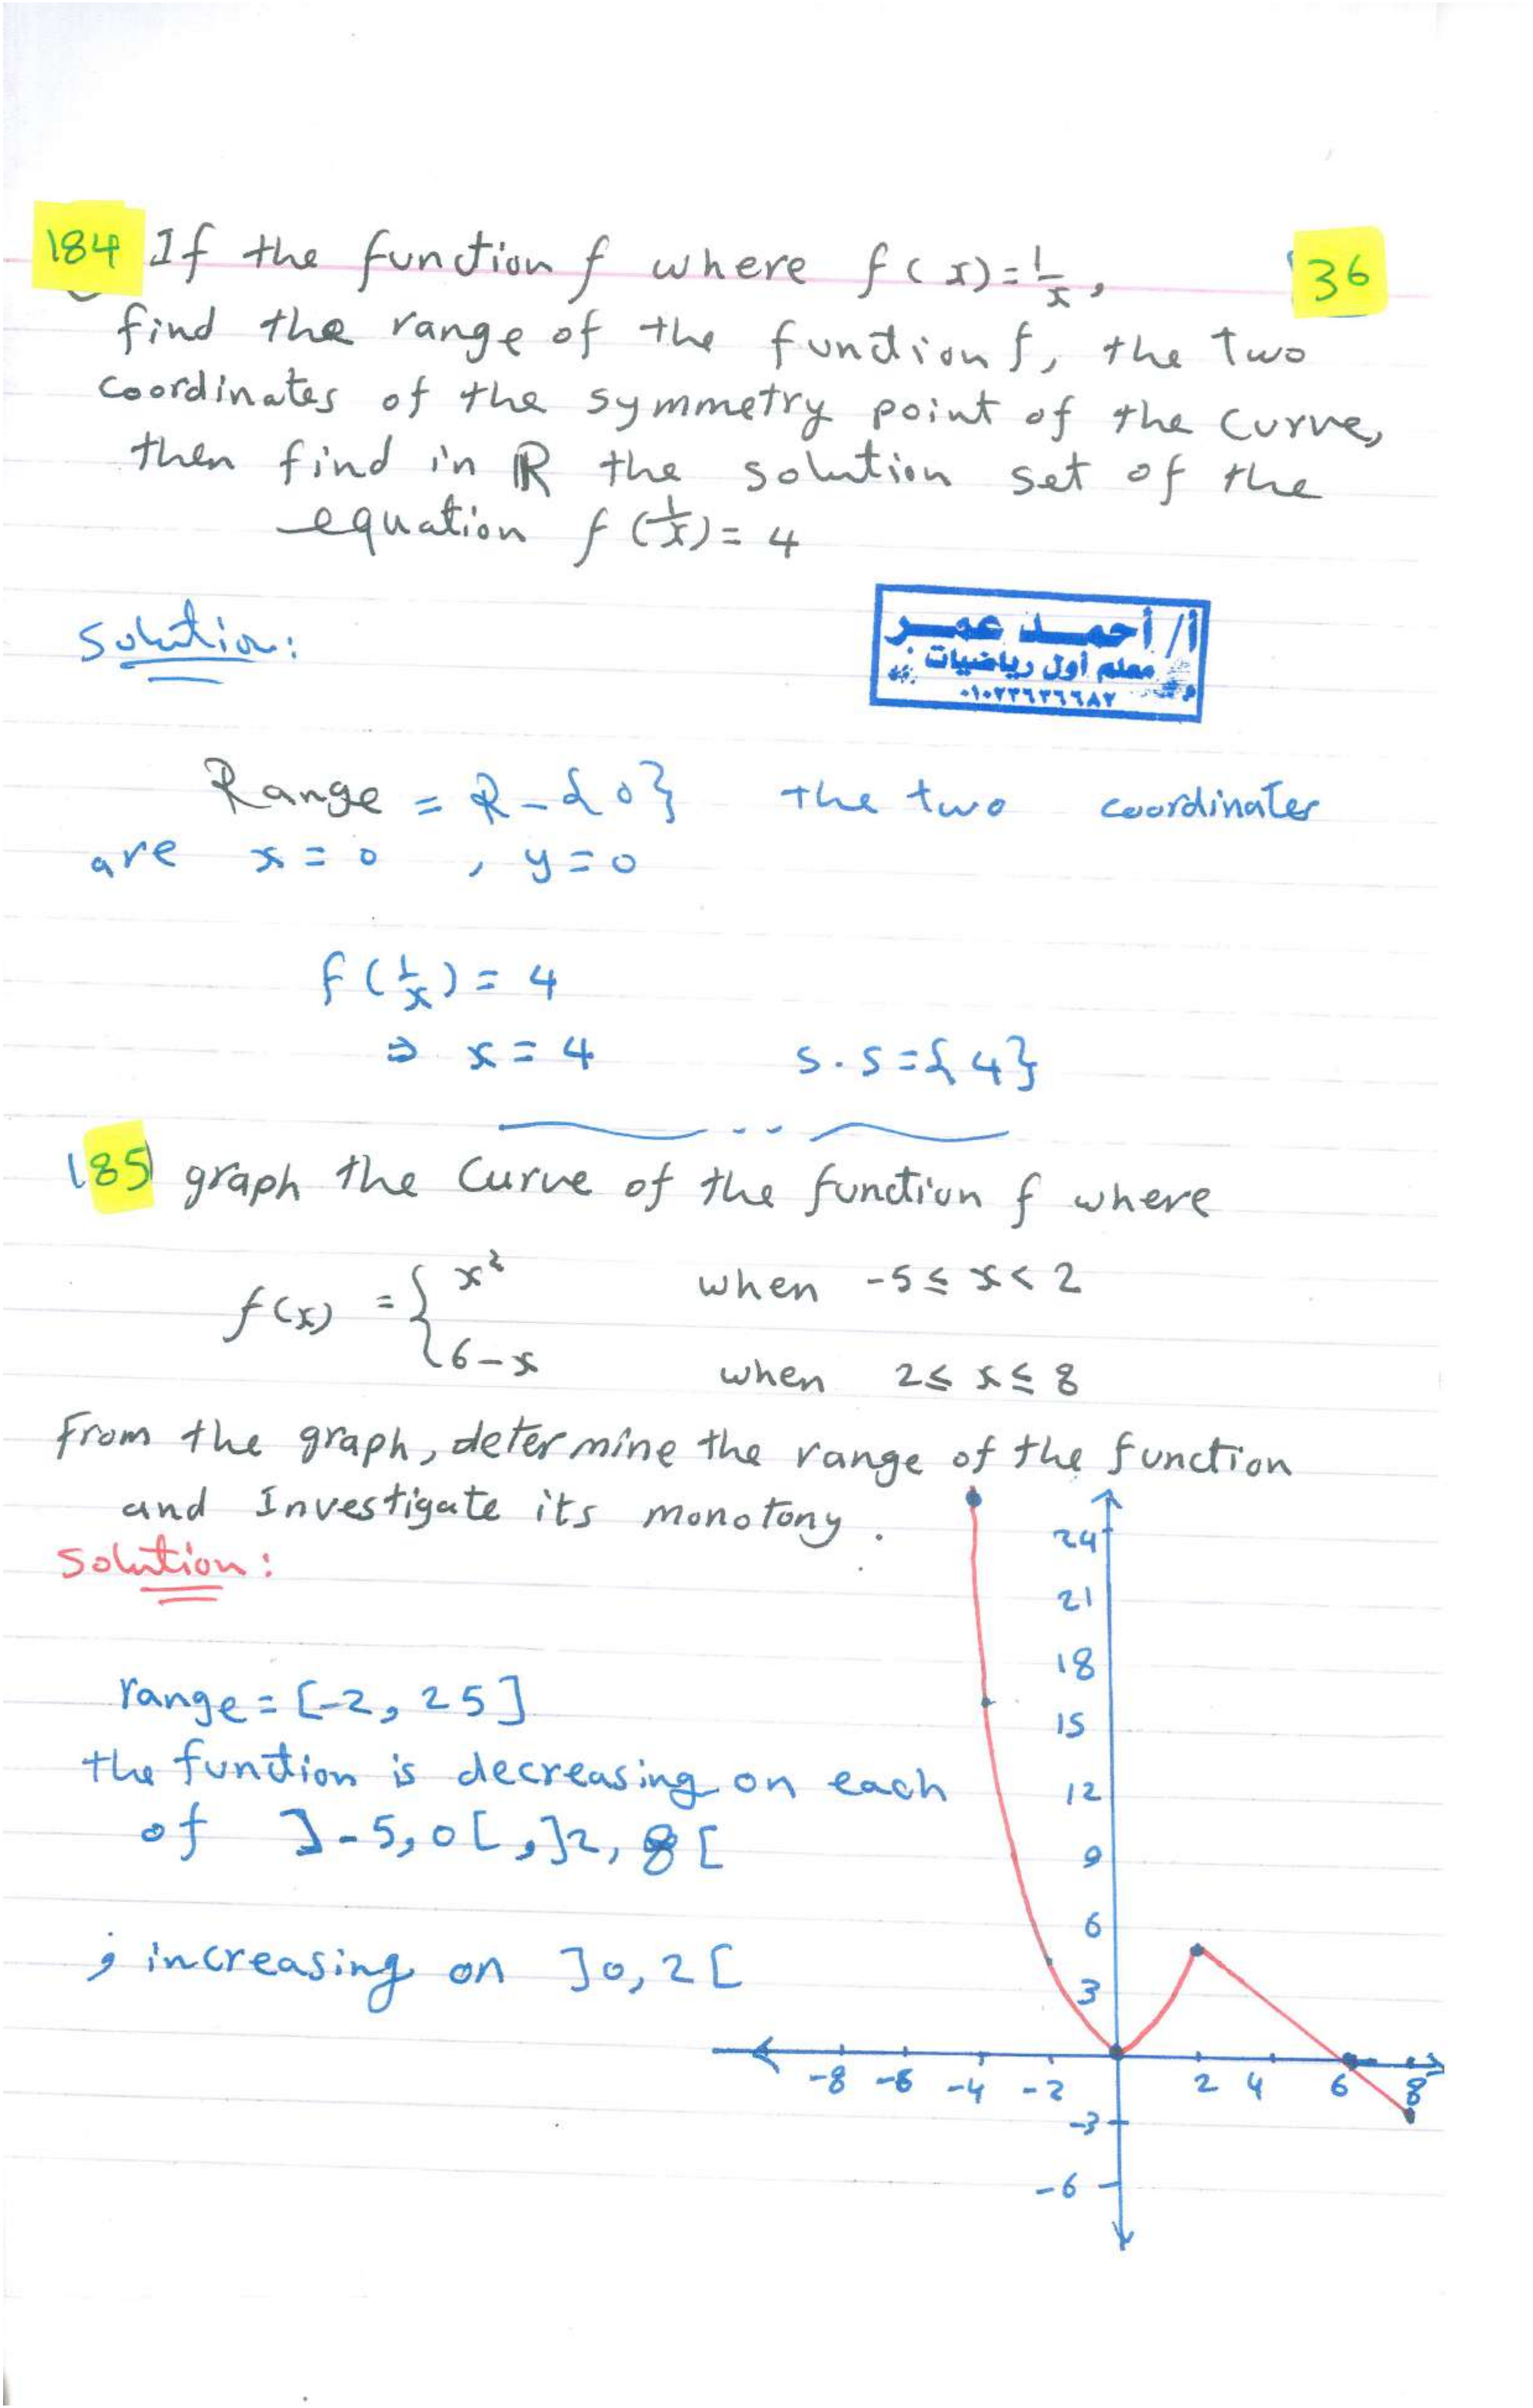 184 If the function f where f(x)=1/x, 36
find the range of the function f, the two
coordinates of the symmetry point of the curve,
then find in ℝ the solution set of the
equation f(1/x)=4
أ/ أحمد عمر
معلم أول رياضيات
٠١٠٢٢٦٣٦٦٨٢
Solution:
Range = R-{0} the two coordinates
are x=0 , y=0
f(1/x)=4
⇒ x=4 S.S={4}
185 graph the curve of the function f where
f(x) = { x² when -5≤x<2
6-x when 2≤x≤8
From the graph, determine the range of the function
and Investigate its monotony.
Solution:
range=[-2,25]
the function is decreasing on each
of ]-5,0[,]2,8[
; increasing on ]0,2[
24
21
18
15
12
9
6
3
-8 -6 -4 -2 2 4 6 8
-3
-6